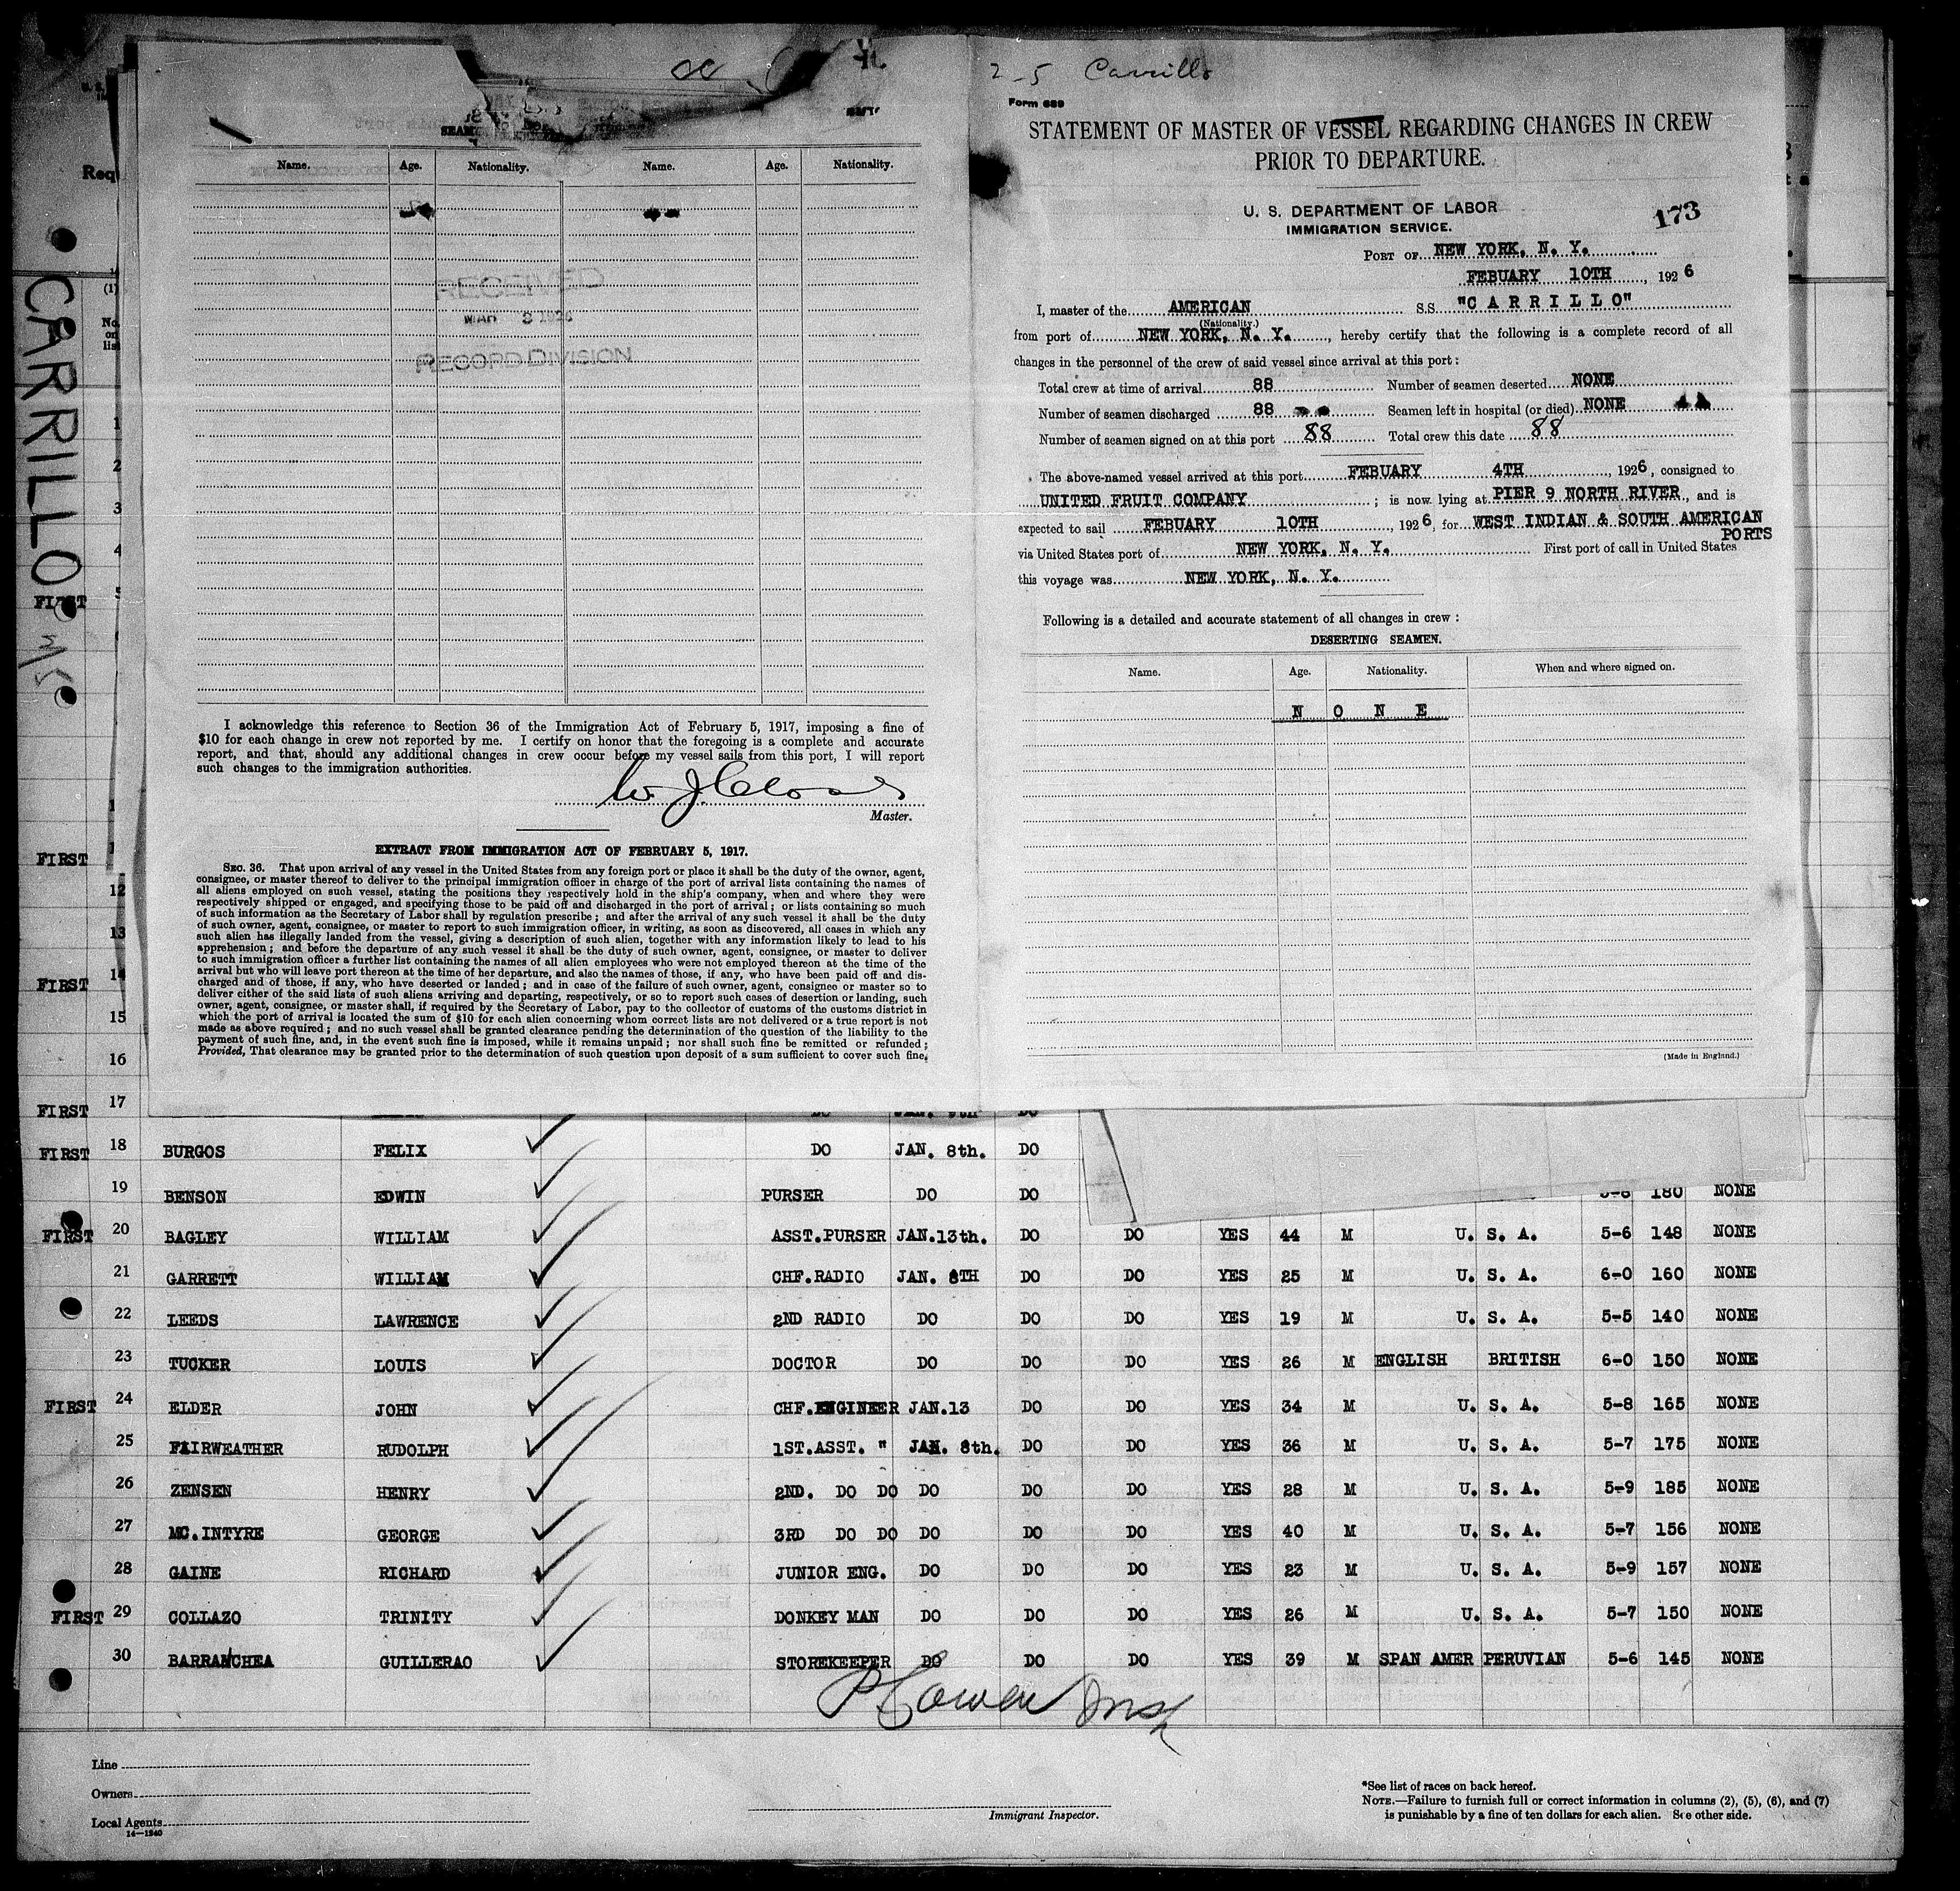 CARRILLO
Name. Age. Nationality. Name. Age. Nationality.
RECEIVED
MAR 3 1926
RECORD DIVISION
I acknowledge this reference to Section 36 of the Immigration Act of February 5, 1917, imposing a fine of
$10 for each change in crew not reported by me. I certify on honor that the foregoing is a complete and accurate
report, and that, should any additional changes in crew occur before my vessel sails from this port, I will report
such changes to the immigration authorities.
Master.
EXTRACT FROM IMMIGRATION ACT OF FEBRUARY 5, 1917.
SEC. 36. That upon arrival of any vessel in the United States from any foreign port or place it shall be the duty of the owner, agent,
consignee, or master thereof to deliver to the principal immigration officer in charge of the port of arrival lists containing the names of
all aliens employed on such vessel, stating the positions they respectively hold in the ship's company, when and where they were
respectively shipped or engaged, and specifying those to be paid off and discharged in the port of arrival; or lists containing so much
of such information as the Secretary of Labor shall by regulation prescribe; and after the arrival of any such vessel it shall be the duty
of such owner, agent, consignee, or master to report to such immigration officer, in writing, as soon as discovered, all cases in which any
such alien has illegally landed from the vessel, giving a description of such alien, together with any information likely to lead to his
apprehension; and before the departure of any such vessel it shall be the duty of such owner, agent, consignee, or master to deliver
to such immigration officer a further list containing the names of all alien employees who were not employed thereon at the time of the
arrival but who will leave port thereon at the time of her departure, and also the names of those, if any, who have been paid off and dis-
charged and of those, if any, who have deserted or landed; and in case of the failure of such owner, agent, consignee or master so to
deliver either of the said lists of such aliens arriving and departing, respectively, or so to report such cases of desertion or landing, such
owner, agent, consignee, or master shall, if required by the Secretary of Labor, pay to the collector of customs of the customs district in
which the port of arrival is located the sum of $10 for each alien concerning whom correct lists are not delivered or a true report is not
made as above required; and no such vessel shall be granted clearance pending the determination of the question of the liability to the
payment of such fine, and, in the event such fine is imposed, while it remains unpaid; nor shall such fine be remitted or refunded;
Provided, That clearance may be granted prior to the determination of such question upon deposit of a sum sufficient to cover such fine.
2-5 Carrillo
Form 689
STATEMENT OF MASTER OF VESSEL REGARDING CHANGES IN CREW
PRIOR TO DEPARTURE.
U. S. DEPARTMENT OF LABOR
IMMIGRATION SERVICE.
173
PORT OF NEW YORK, N. Y.
FEBUARY 10TH, 1926
I, master of the AMERICAN S.S. "CARRILLO"
(Nationality.)
from port of NEW YORK, N. Y., hereby certify that the following is a complete record of all
changes in the personnel of the crew of said vessel since arrival at this port:
Total crew at time of arrival 88 Number of seamen deserted NONE
Number of seamen discharged 88 Seamen left in hospital (or died) NONE
Number of seamen signed on at this port 88 Total crew this date 88
The above-named vessel arrived at this port FEBUARY 4TH, 1926, consigned to
UNITED FRUIT COMPANY; is now lying at PIER 9 NORTH RIVER, and is
expected to sail FEBUARY 10TH, 1926, for WEST INDIAN & SOUTH AMERICAN
PORTS
via United States port of NEW YORK, N. Y. First port of call in United States
this voyage was NEW YORK, N. Y.
Following is a detailed and accurate statement of all changes in crew:
DESERTING SEAMEN.
Name. Age. Nationality. When and where signed on.
N O N E
(Made in England.)
1
2
3
4
5
FIRST
FIRST
12
13
FIRST 14
15
16
FIRST 17
FIRST 18 BURGOS FELIX DO JAN. 8th. DO
19 BENSON EDWIN PURSER DO DO 180 NONE
FIRST 20 BAGLEY WILLIAM ASST.PURSER JAN.13th. DO DO YES 44 M U. S. A. 5-6 148 NONE
21 GARRETT WILLIAM CHF.RADIO JAN. 8TH DO DO YES 25 M U. S. A. 6-0 160 NONE
22 LEEDS LAWRENCE 2ND RADIO DO DO DO YES 19 M U. S. A. 5-5 140 NONE
23 TUCKER LOUIS DOCTOR DO DO DO YES 26 M ENGLISH BRITISH 6-0 150 NONE
FIRST 24 ELDER JOHN CHF.ENGINEER JAN.13 DO DO YES 34 M U. S. A. 5-8 165 NONE
25 FAIRWEATHER RUDOLPH 1ST.ASST. " JAN. 8th. DO DO YES 36 M U. S. A. 5-7 175 NONE
26 ZENSEN HENRY 2ND. DO DO DO DO DO YES 28 M U. S. A. 5-9 185 NONE
27 MC.INTYRE GEORGE 3RD DO DO DO DO DO YES 40 M U. S. A. 5-7 156 NONE
28 GAINE RICHARD JUNIOR ENG. DO DO DO YES 23 M U. S. A. 5-9 157 NONE
FIRST 29 COLLAZO TRINITY DONKEY MAN DO DO DO YES 26 M U. S. A. 5-7 150 NONE
30 BARRANCHEA GUILLERAO STOREKEEPER DO DO DO YES 39 M SPAN AMER PERUVIAN 5-6 145 NONE
Line
Owners
Local Agents
14-1240
Immigrant Inspector.
*See list of races on back hereof.
NOTE.—Failure to furnish full or correct information in columns (2), (5), (6), and (7)
is punishable by a fine of ten dollars for each alien. See other side.